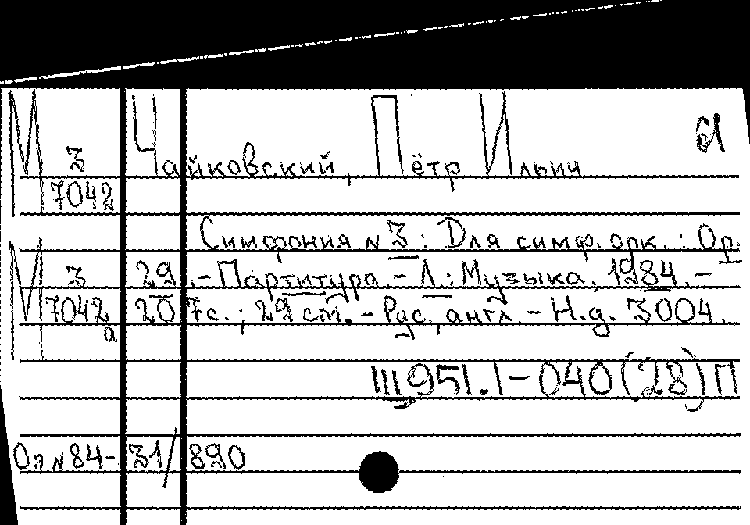 М З 7042 Чайковский, Пётр Ильич
Симфония № 3: Для симф. орк.: Ор.
М З 7042а 29.-Партитура.-Л.: Музыка, 1984.-
207с.; 29 см.-Рус., англ.-Н.д. 3004.
Ш951.1-040(28)П
Оэ №84-31/890